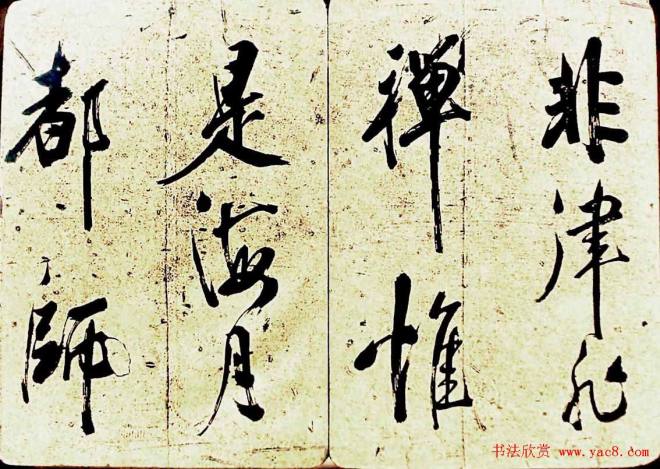 非律非
禪惟
是海月
都師
书法欣赏 www.yac8.com